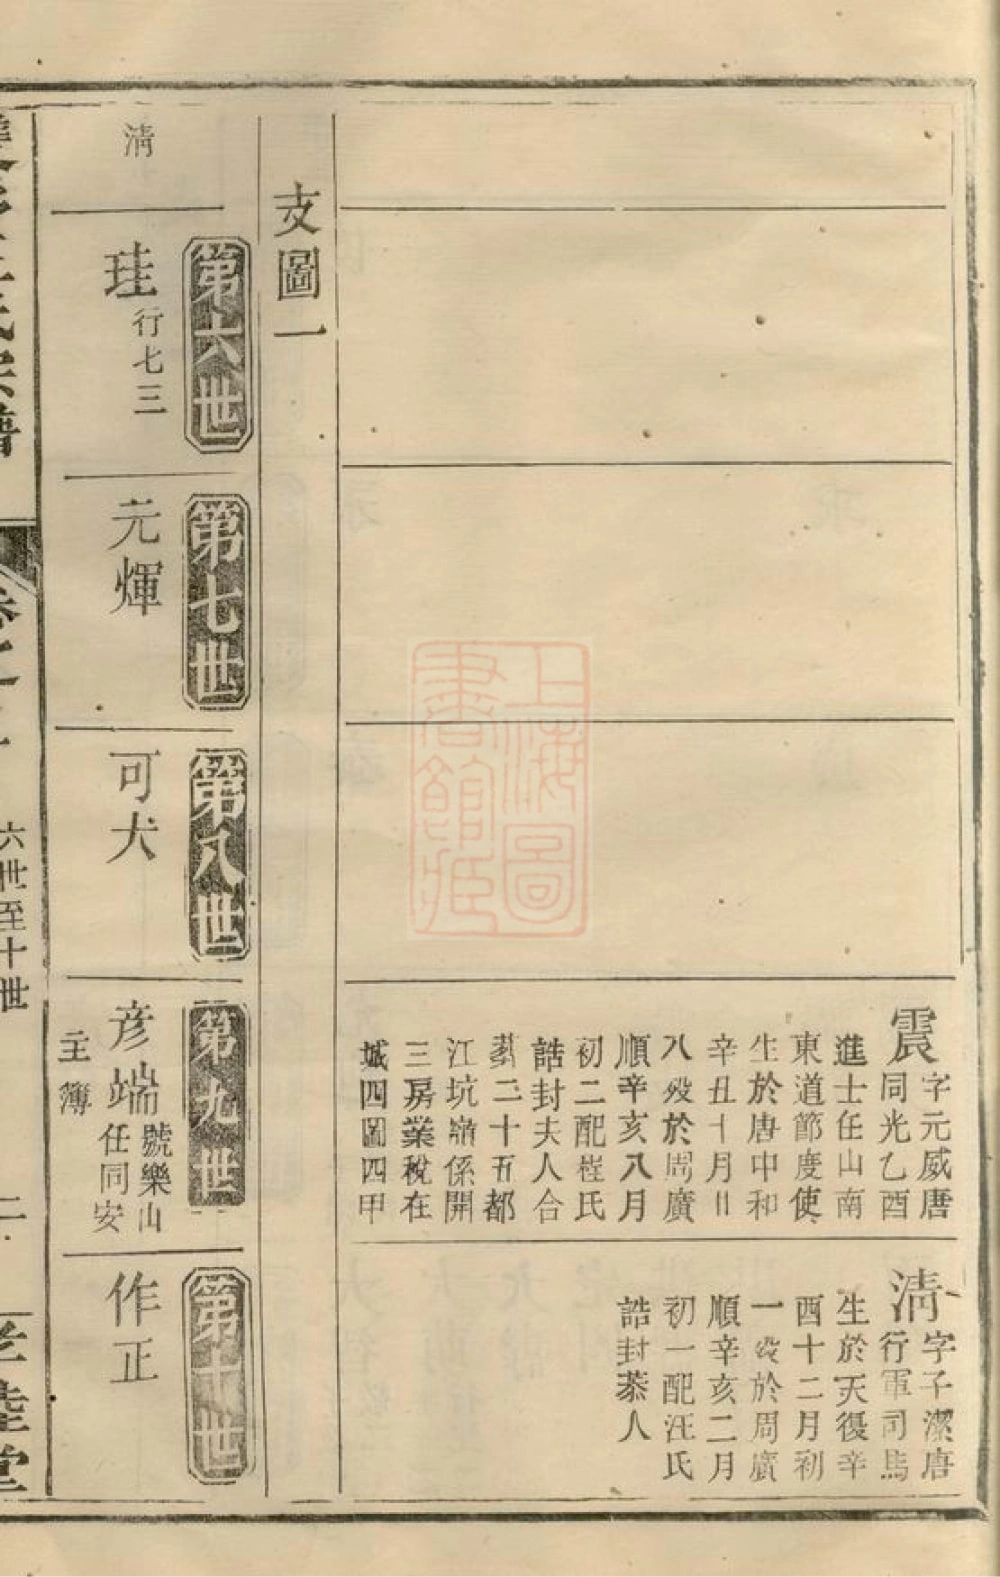 震
字元威唐
同光乙酉
進士任山南
東道節度使
生於唐中和
辛丑十月日
八歿於周廣
順辛亥八月
初二配崔氏
誥封夫人合
葬二十五都
江坑嶺係開
三房業稅在
城四圖四甲
清
字子潔唐
行軍司馬
生於天復辛
酉十二月初
一歿於周廣
順辛亥二月
初一配汪氏
誥封恭人
支圖一
第六世
第七世
第八世
第九世
第十世
清
珪
行七三
元煇
可大
彦端
號樂山
任同安
主簿
作正
氏宗譜
六世至十世
二
上海圖
書館藏